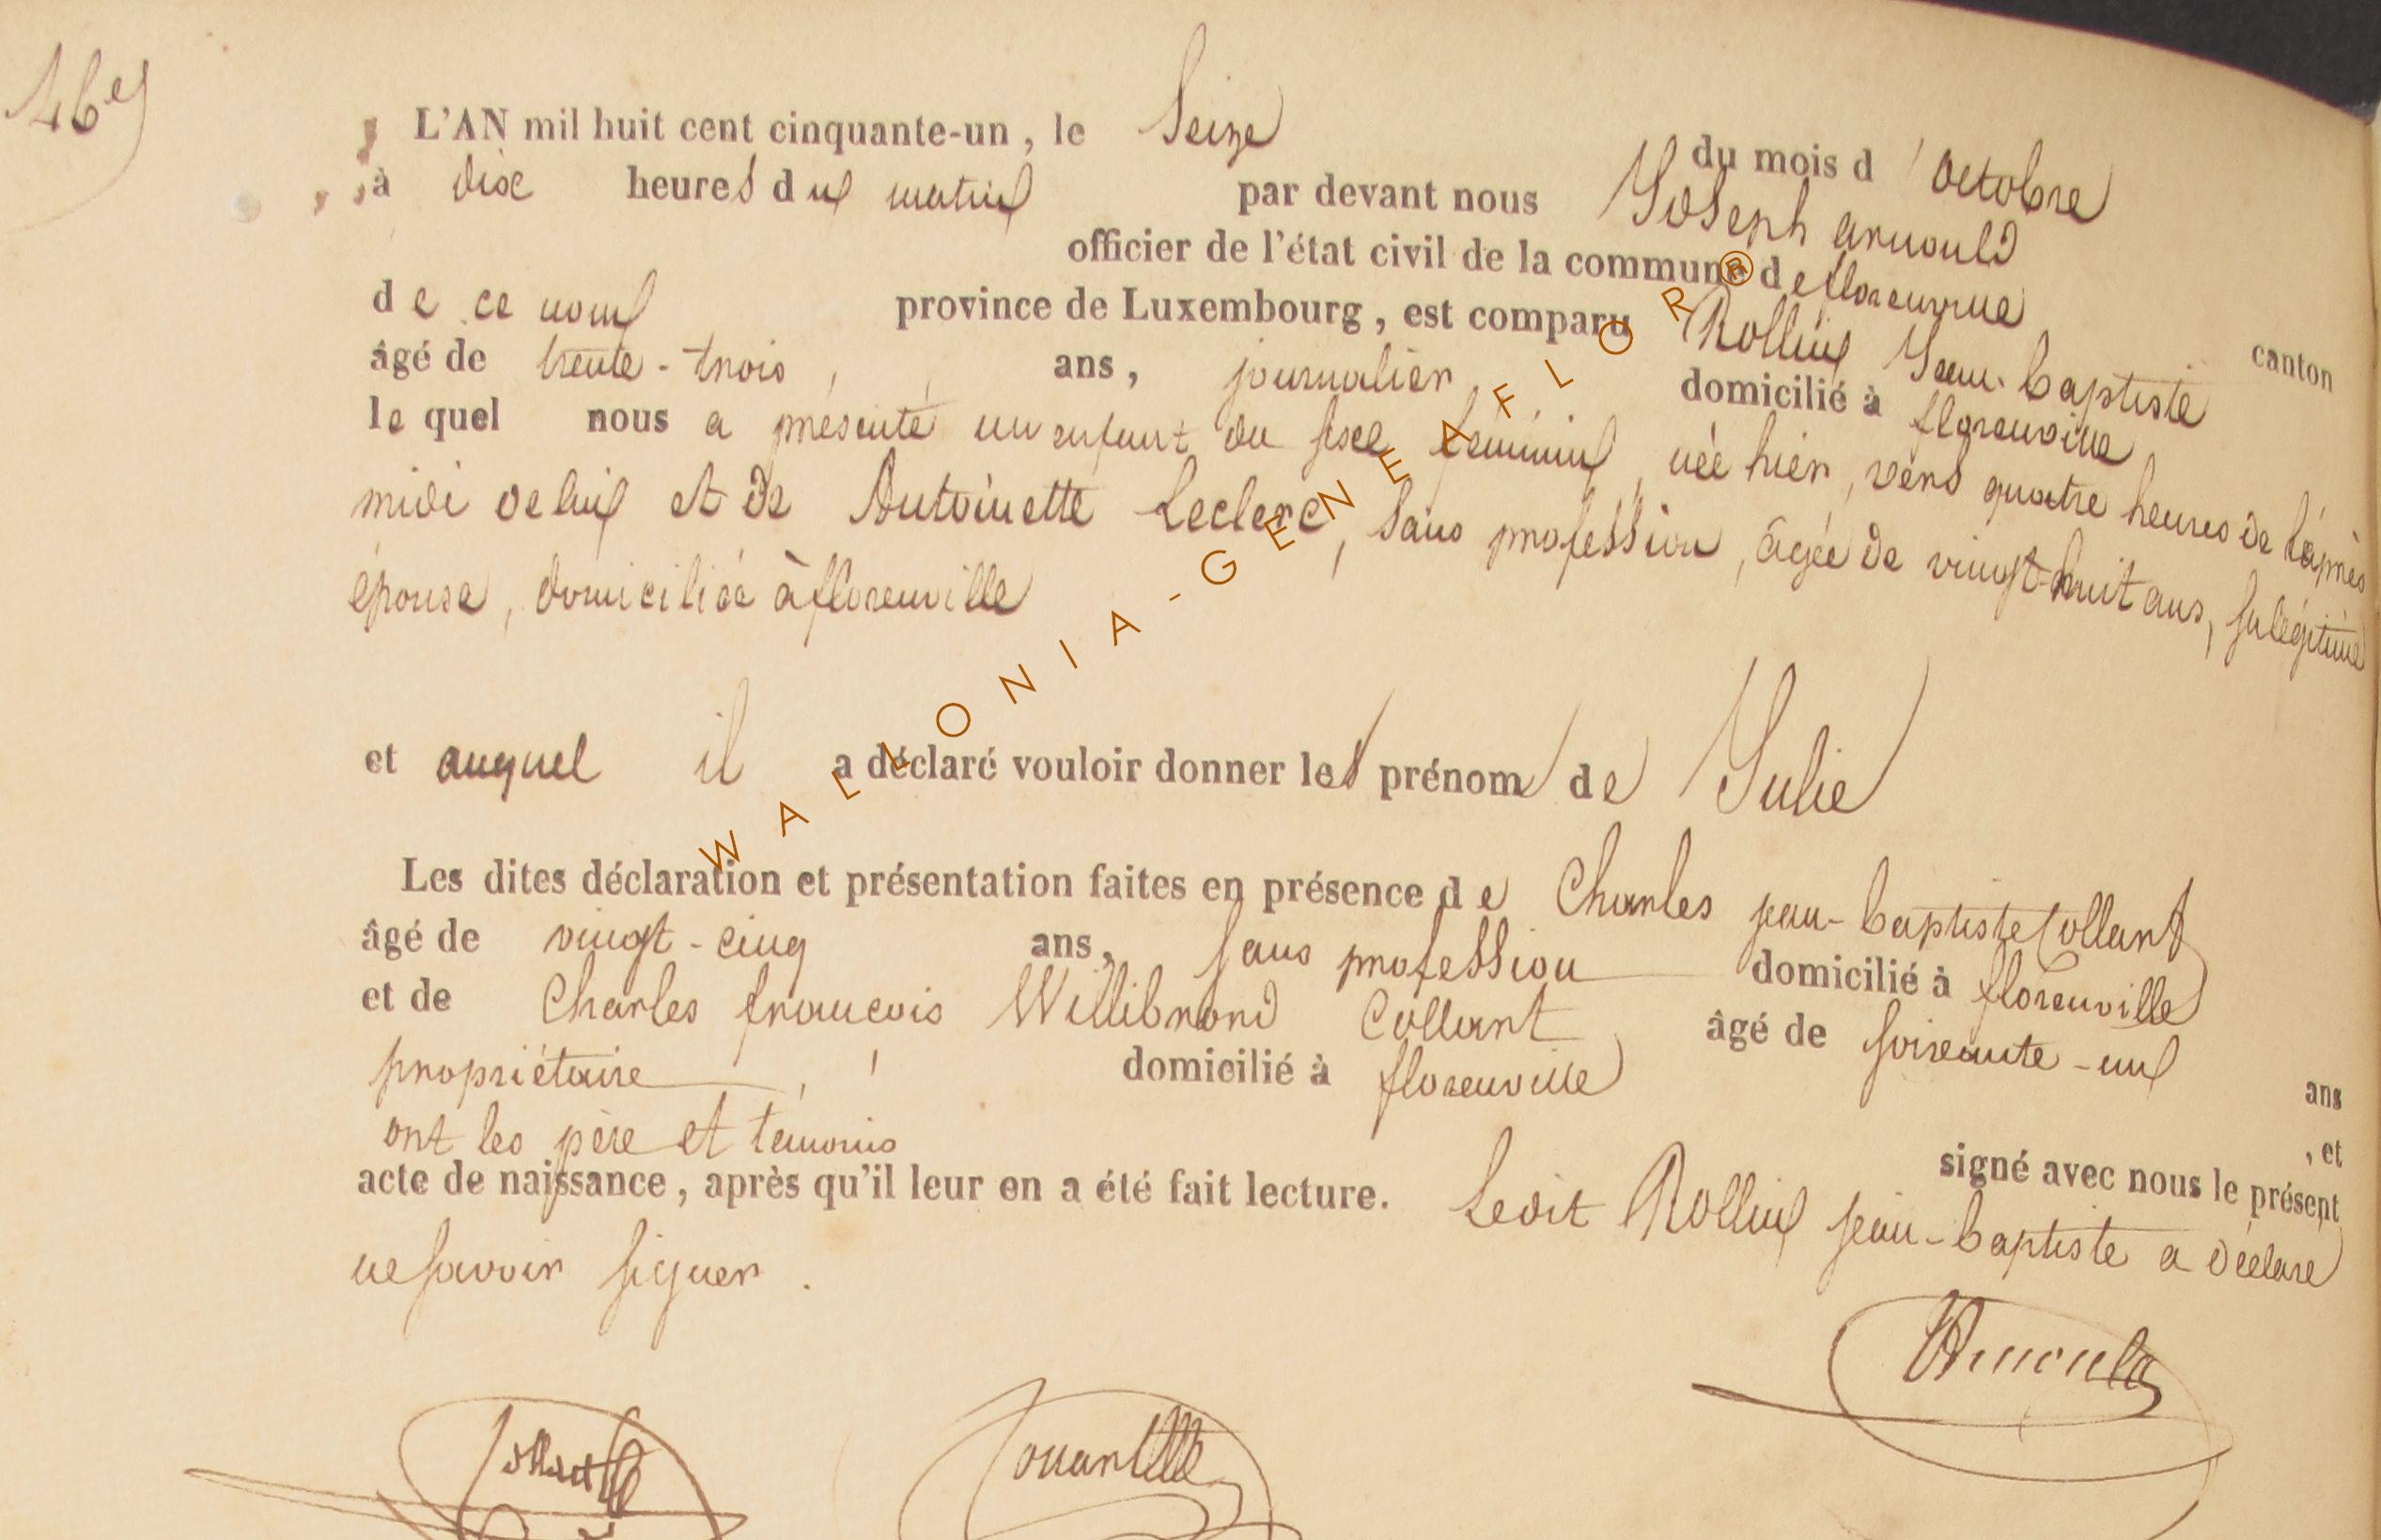 46e
L'AN mil huit cent cinquante-un, le Seize du mois d'octobre
à dix heures du matin par devant nous Joseph arnould
officier de l'état civil de la commune de florenville canton
de ce nom province de Luxembourg, est comparu Rollin Jean-baptiste
âgé de trente-trois ans, journalier domicilié à florenville
lequel nous a présenté un enfant du sexe féminin, née hier, vers quatre heures de l'après
midi de lui et de Antoinette Leclerc, sans profession, âgée de vingt-huit ans, sa légitime
épouse, domiciliée à florenville
et auquel il a déclaré vouloir donner les prénom de Julie
Les dites déclaration et présentation faites en présence de Charles jean-baptiste Collart
âgé de vingt-cinq ans, sans profession domicilié à florenville
et de Charles françois Willibrord Collart âgé de soixante-un ans
propriétaire, domicilié à florenville, et
ont les père et témoins signé avec nous le présent
acte de naissance, après qu'il leur en a été fait lecture. Ledit Rollin jean-baptiste a déclaré
ne savoir signer.
WALLONIA-GENEAFLOR®